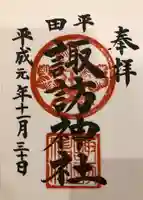 奉拝
平田
諏訪神社
平成元年十一月三十日